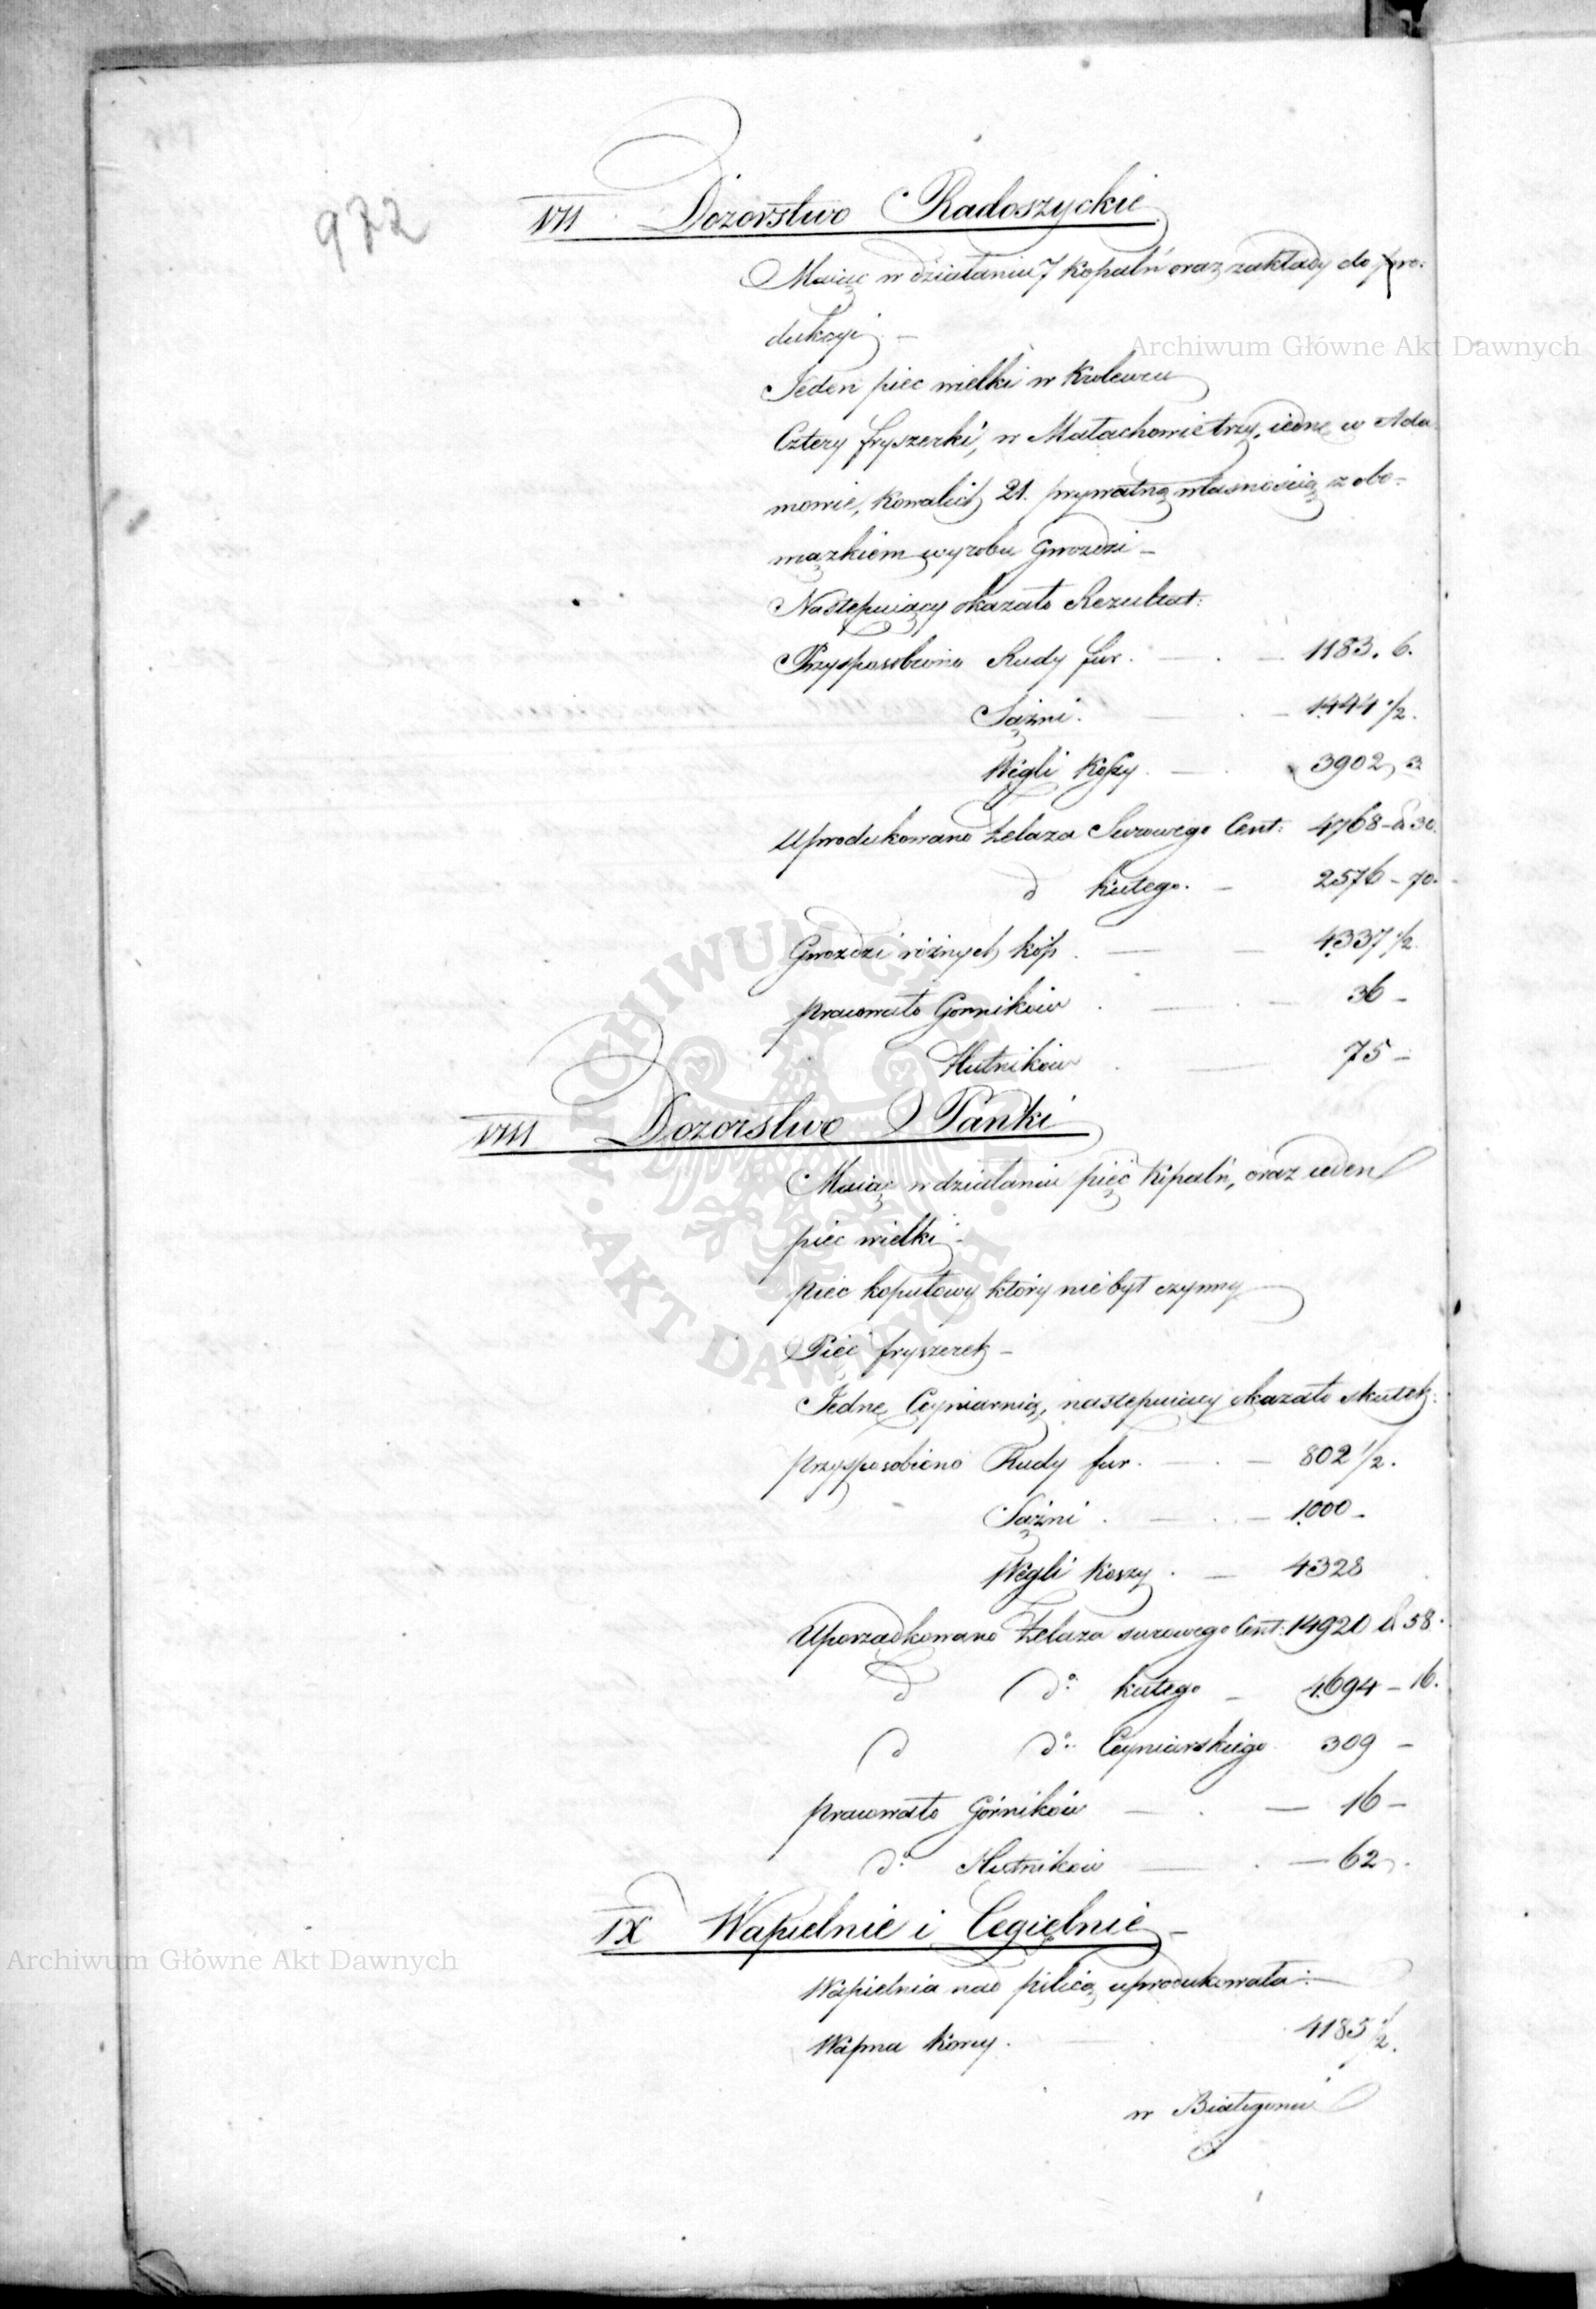 972
VII Dozorstwo Radoszyckie
Maiąc w działaniu 7 Kopalń oraz zakłady do pro-
dukcyi –
Archiwum Główne Akt Dawnych
Jeden piec wielki w Krolewcu
Cztery fryszerki, w Małachowie trzy, iedne w Ada
mowie, Kowalich 21. prywatną własnością z obo-
wązkiem wyrobu Gwozdzi –
Następuiący okazało Rezultat:
Przysposobiono Rudy fur. 1183. 6.
Sążni. 1444 1/2.
Węgli Koszy. 3902, 3
Uprodukowano Żelaza Surowego Cent: 4768 – 30.
d kutego. – 2576 – 70.
Gwozdzi różnych kóp. 4337 1/2
pracowało Gornikow 36 –
Hutników 75 –
ARCHIWUM GŁÓWNE AKT DAWNYCH
VIII Dozorstwo Panki
Maiąc w działaniu pięć Kopalń, oraz ieden
piec wielki –
piec kopułowy który nie był czynny
Pięć fryszerek –
Jedne Cyniarnią, następuiący okazało skutek:
przysposobiono Rudy fur. 802 1/2.
Sążni. 1000 –
Węgli Koszy. – 4328
Uporządkowano Żelaza surowego Cent: 14920 58.
d do kutego – 4694 – 16.
d do Cyniarskiego 309 –
pracowało Górników 16 –
do Hutników 62.
IX Wapielnie i Cegielnie –
Archiwum Główne Akt Dawnych
Wapielnia nad pilicą uprodukowała:
Wapna korcy. 4185 1/2.
w Białogonie